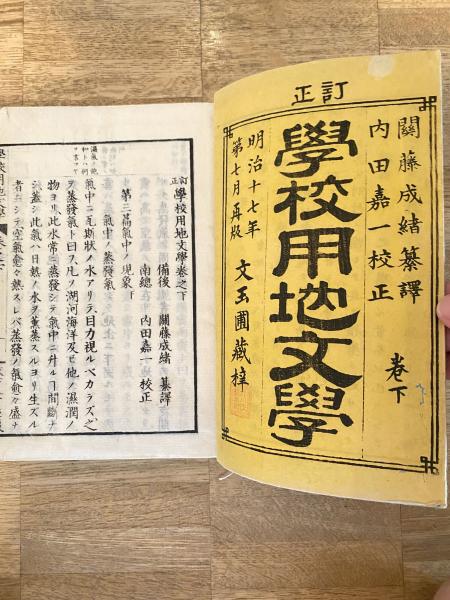 訂正
關藤成緒纂譯
内田嘉一校正
卷下
學校用地文學
明治十七年
第七月再版
文玉圃藏梓
訂正 學校用地文學卷之下
備後 關藤成緒 纂譯
南總 内田嘉一 校正
第三篇 氣中ノ現象 下
氣中ノ蒸發氣
氣中ニ瓦斯状ノ水アリテ目力視ルベカラズ之
ヲ蒸發氣ト曰フ凡ソ湖河海洋及ビ他ノ濕潤ノ
物ヨリ此水常ニ蒸發シテ氣中ニ升ルヿ間斷ナ
シ蓋シ此氣ハ日熱ノ水ヲ薫蒸スルヨリ生ズル
者ニシテ空氣愈々熱スレバ蒸發ノ氣愈々盛ナ